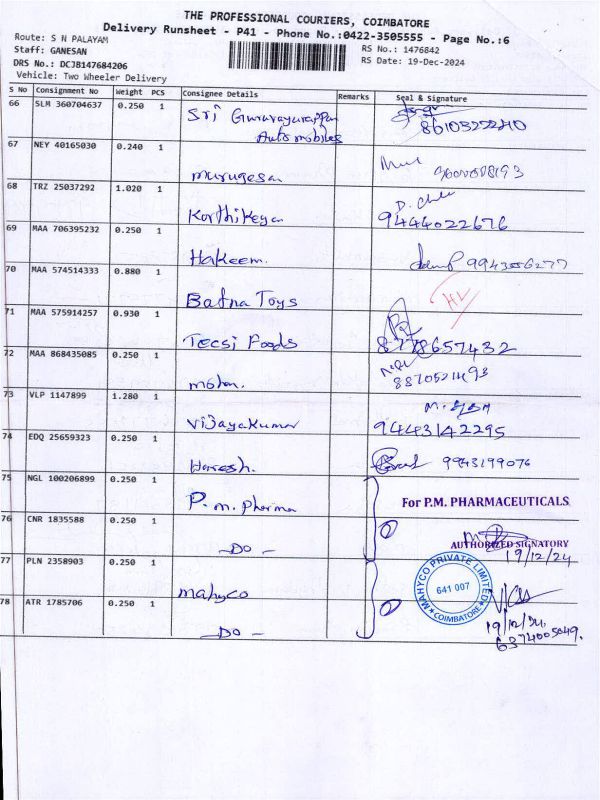 THE PROFESSIONAL COURIERS, COIMBATORE
Delivery Runsheet - P41 - Phone No.:0422-3505555 - Page No.:6
Route: S N PALAYAM
Staff: GANESAN
RS No.: 1476842
DRS No.: DCJB147684206
RS Date: 19-Dec-2024
Vehicle: Two Wheeler Delivery
S No Consignment No Weight PCS Consignee Details Remarks Seal & Signature
66 SLM 360704637 0.250 1 Sri Gururayurappan
Automobiles
67 NEY 40165030 0.240 1
murugesan
68 TRZ 25037292 1.020 1
Karthikeyan 9444022676
69 MAA 706395232 0.250 1
Hakeem.
70 MAA 574514333 0.880 1 HL
Batna Toys
71 MAA 575914257 0.930 1
Tecsi Foods 8778657432
72 MAA 868435085 0.250 1
73 VLP 1147899 1.280 1
Vijayakumar 94443142295
74 EDQ 25659323 0.250 1
Haresh. 9943199076
75 NGL 100206899 0.250 1
P.m. pharma For P.M. PHARMACEUTICALS
76 CNR 1835588 0.250 1
-DO- AUTHORIZED SIGNATORY
19/12/24
77 PLN 2358903 0.250 1
mahyco MAHYCO PRIVATE LIMITED
641 007
COIMBATORE
78 ATR 1785706 0.250 1
-DO- 19/12/24.
6374005049.